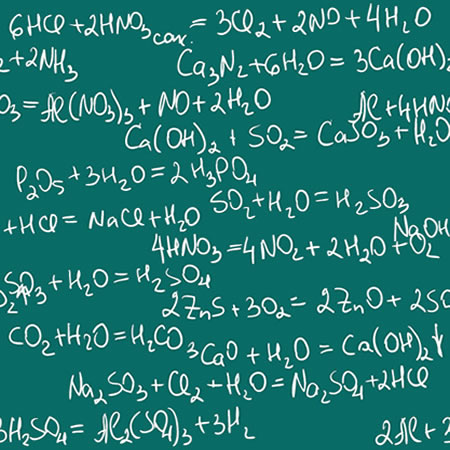 6HCl + 2HNO₃ конс. = 3Cl₂ + 2NO + 4H₂O
₂ + 2NH₃ Ca₃N₂ + 6H₂O = 3Ca(OH)₂
O₃ = Al(NO₃)₃ + NO + 2H₂O Al + 4HNO
Ca(OH)₂ + SO₂ = CaSO₃ + H₂O
P₂O₅ + 3H₂O = 2H₃PO₄
SO₂ + H₂O = H₂SO₃
+ HCl = NaCl + H₂O NaOH
4HNO₃ = 4NO₂ + 2H₂O + O₂
SO₃ + H₂O = H₂SO₄
2ZnS + 3O₂ = 2ZnO + 2SO
CO₂ + H₂O = H₂CO₃
CaO + H₂O = Ca(OH)₂↓
Na₂SO₃ + Cl₂ + H₂O = Na₂SO₄ + 2HCl
3H₂SO₄ = Al₂(SO₄)₃ + 3H₂ 2Al + 3